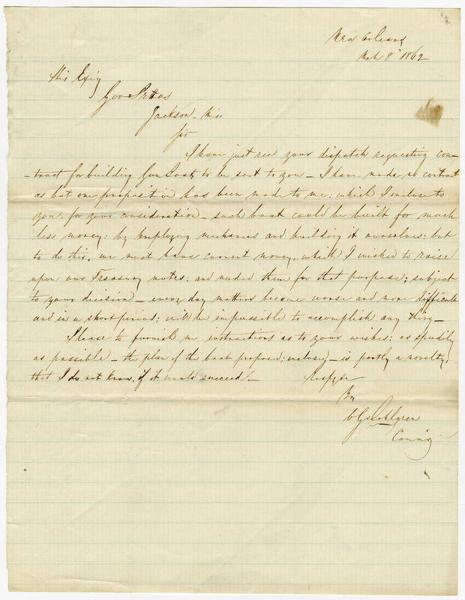 New Orleans
Mch 9th 1862
His Excy
Gov Pettus
Jackson Miss
Sir
I have just seen your dispatch requesting con-
-tract for building Gun boat to be sent to you - I have made no contract
as but one proposition has been made to me; which I enclose to
you, for your consideration - such boat could be built for much
less money, by employing mechanics and building it ourselves; but
to do this, we must have current money, which I wished to raise
upon our Treasury notes; and needed them for that purpose; subject
to your decision - every day matters become worse and more difficult
and in a short period; will be impossible to accomplish any thing -
Please to furnish me instructions as to your wishes; as speedily
as possible - the plan of the boat proposed; is partly a novelty,
that I do not know, if it would succeed -
Respy